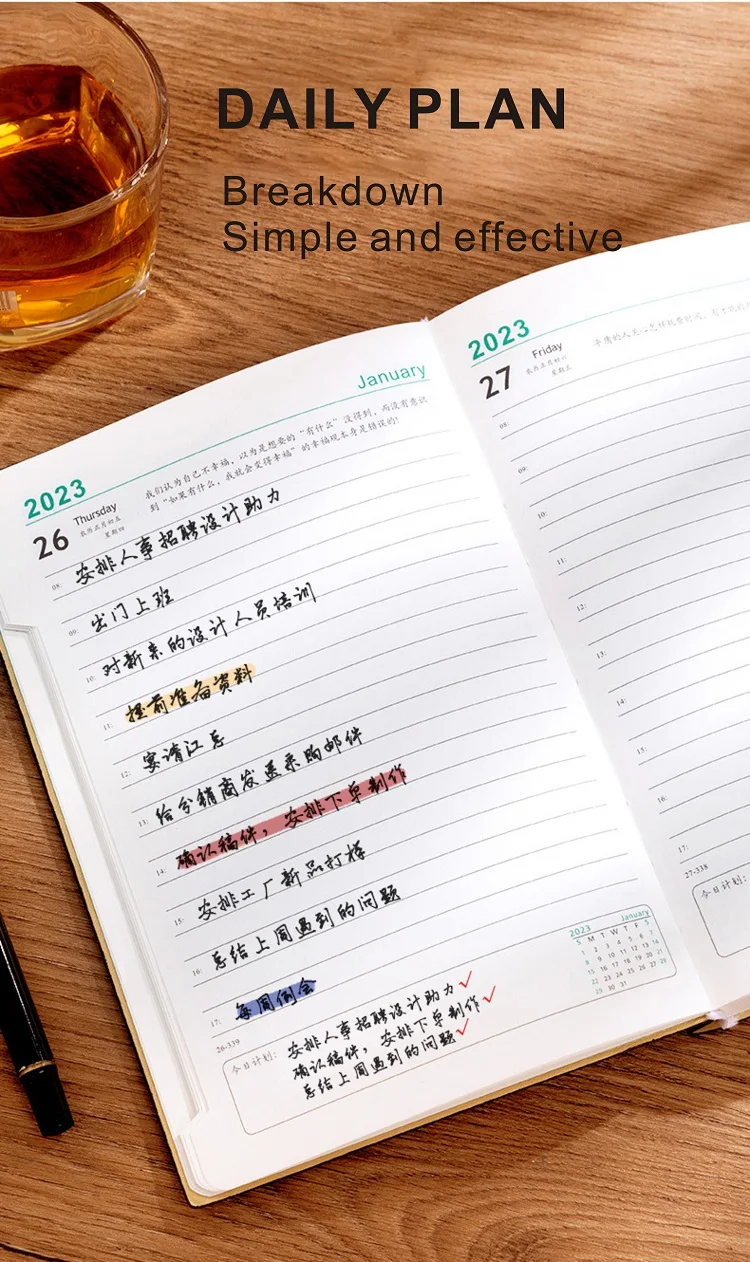 DAILY PLAN
Breakdown
Simple and effective
January
2023
26
Thursday
农历正月初五
星期四
我们认为自己不幸福，以为是想要的“有什么”没得到，而没有意识
到“如果有什么，我就会变得幸福”的幸福观本身是错误的!
08:
安排人事招聘设计助力
09:
出门上班
10:
对新来的设计人员培训
11:
提前准备资料
12:
宴请江总
13:
给分销商发送采购邮件
14:
确认稿件，安排下单制作
15:
安排工厂新品打样
16:
总结上周遇到的问题
17:
每周例会
26-339
今日计划:
安排人事招聘设计助力
确认稿件，安排下单制作
总结上周遇到的问题
2023 January
S M T W T F S
1 2 3 4 5 6 7
8 9 10 11 12 13 14
15 16 17 18 19 20 21
22 23 24 25 26 27 28
29 30 31
2023
27
Friday
农历正月初六
星期五
平庸的人关心怎样耗费时间，有才能的
08:
09:
10:
11:
12:
13:
14:
15:
16:
17:
27-338
今日计划: